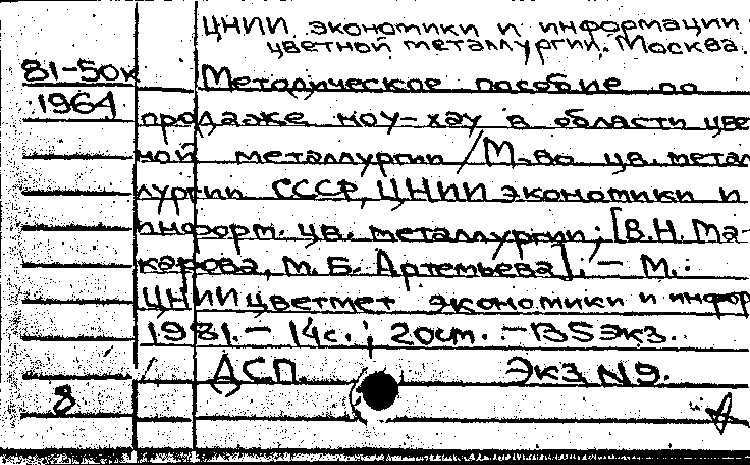 ЦНИИ экономики и информации
цветной металлургии. Москва.
81-50к Методическое пособие по
1964 продаже ноу-хау в области цве
ной металлургии / М-во цв. метал
лургии СССР, ЦНИИ экономики и
информ. цв. металлургии; [В.Н. Ма-
карова, М.Б. Артемьева]. - М.:
ЦНИИцветмет экономики и инфор
1981. - 14с.; 20см. - 135экз.
ДСП. Экз. N9.
8